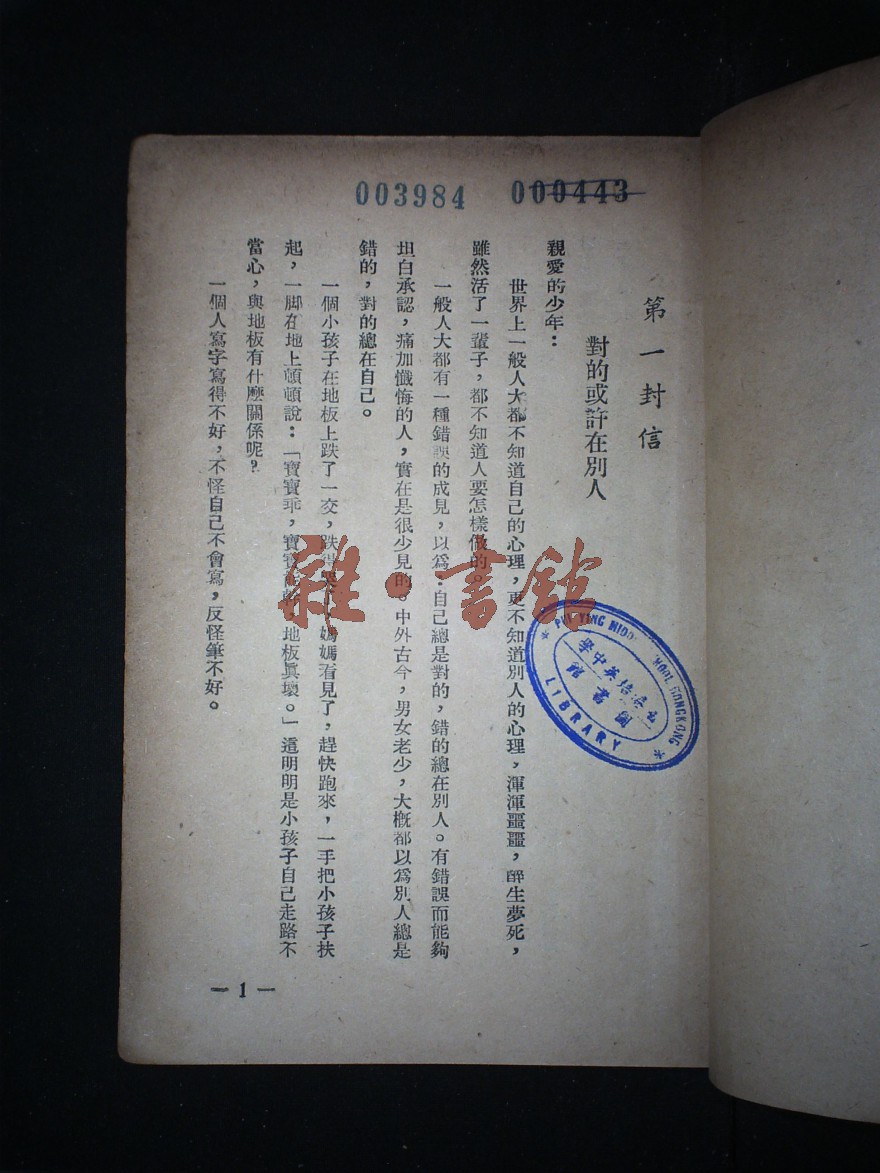 003984 000443
第一封信
對的或許在別人
親愛的少年：
世界上一般人大都不知道自己的心理，更不知道別人的心理，渾渾噩噩，醉生夢死，
雖然活了一輩子，都不知道人要怎樣做的。
一般人大都有一種錯誤的成見，以爲：自己總是對的，錯的總在別人。有錯誤而能夠
坦白承認，痛加懺悔的人，實在是很少見的。中外古今，男女老少，大概都以爲別人總是
錯的，對的總在自己。
一個小孩子在地板上跌了一交，跌得哭了，媽媽看見了，趕快跑來，一手把小孩子扶
起，一脚在地上頓頓說：「寶寶乖，寶寶，地板眞壞。」這明明是小孩子自己走路不
當心，與地板有什麼關係呢？
一個人寫字寫得不好，不怪自己不會寫，反怪筆不好。
— 1 —
雜·書館
PUI YING MIDDLE SCHOOL HONGKONG
培英中學
圖書館
LIBRARY